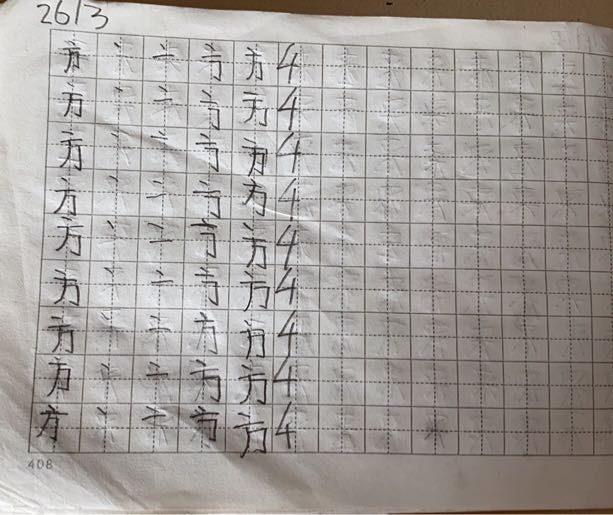 2613
方 丶 亠 方 4
方 丶 亠 方 4
方 丶 亠 方 4
方 丶 亠 方 4
方 丶 亠 方 4
方 丶 亠 方 4
方 丶 亠 方 4
方 丶 亠 方 4
方 丶 亠 方 4
408